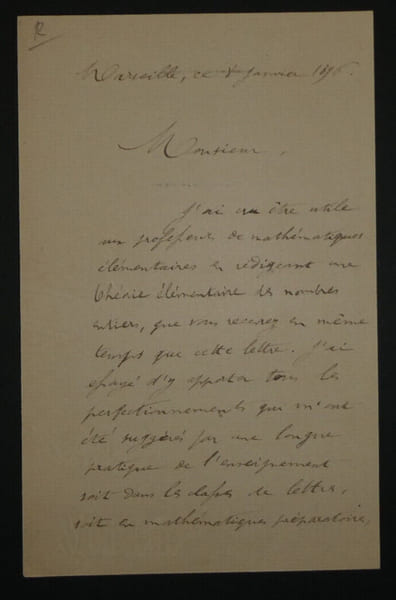 R
Marseille, ce 8 Janvier 1896.
Monsieur,
J'ai cru être utile
aux professeurs de mathématiques
élémentaires en rédigeant une
Théorie élémentaire des nombres
entiers, que vous recevrez en même
temps que cette lettre. J'ai
essayé d'y apporter tous les
perfectionnements qui m'ont
été suggérés par une longue
pratique de l'enseignement
soit dans les classes de lettres,
soit en mathématiques préparatoires,